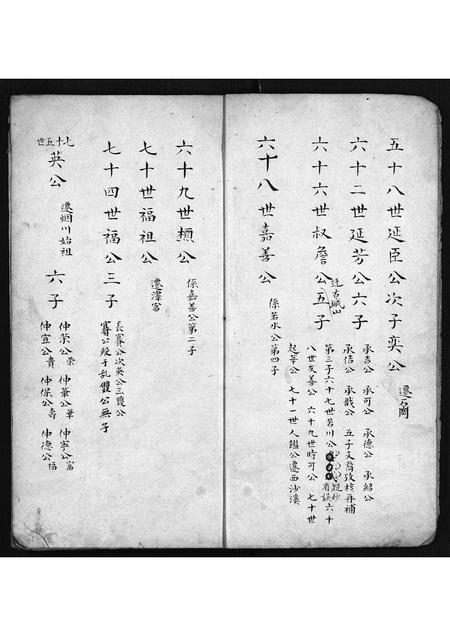 五十八世延臣公次子奕公
遷石門
六十二世延芳公六子
承吉公 承可公 承德公 承紹公
承信公 承戩公 五子文齋攷核再補
六十六世叔詹公五子
遷古城山
第三子六十七世若川公
疑抄有誤
六十
八世友善公 六十九世時可公 七十世
起莘公 七十一世人鑑公遷西沙溪
六十八世嘉善公
係若水公第四子
六十九世概公
係嘉善公第二子
七十世福祖公
遷潭富
七十四世福公三子
長賽公次英公三䨥公
賽公歿于乱䨥公無子
七十五世
英公
遷烟川始祖
六子
仲荣公榮 仲華公華 仲寧公富
仲宣公貴 仲保公壽 仲德公福